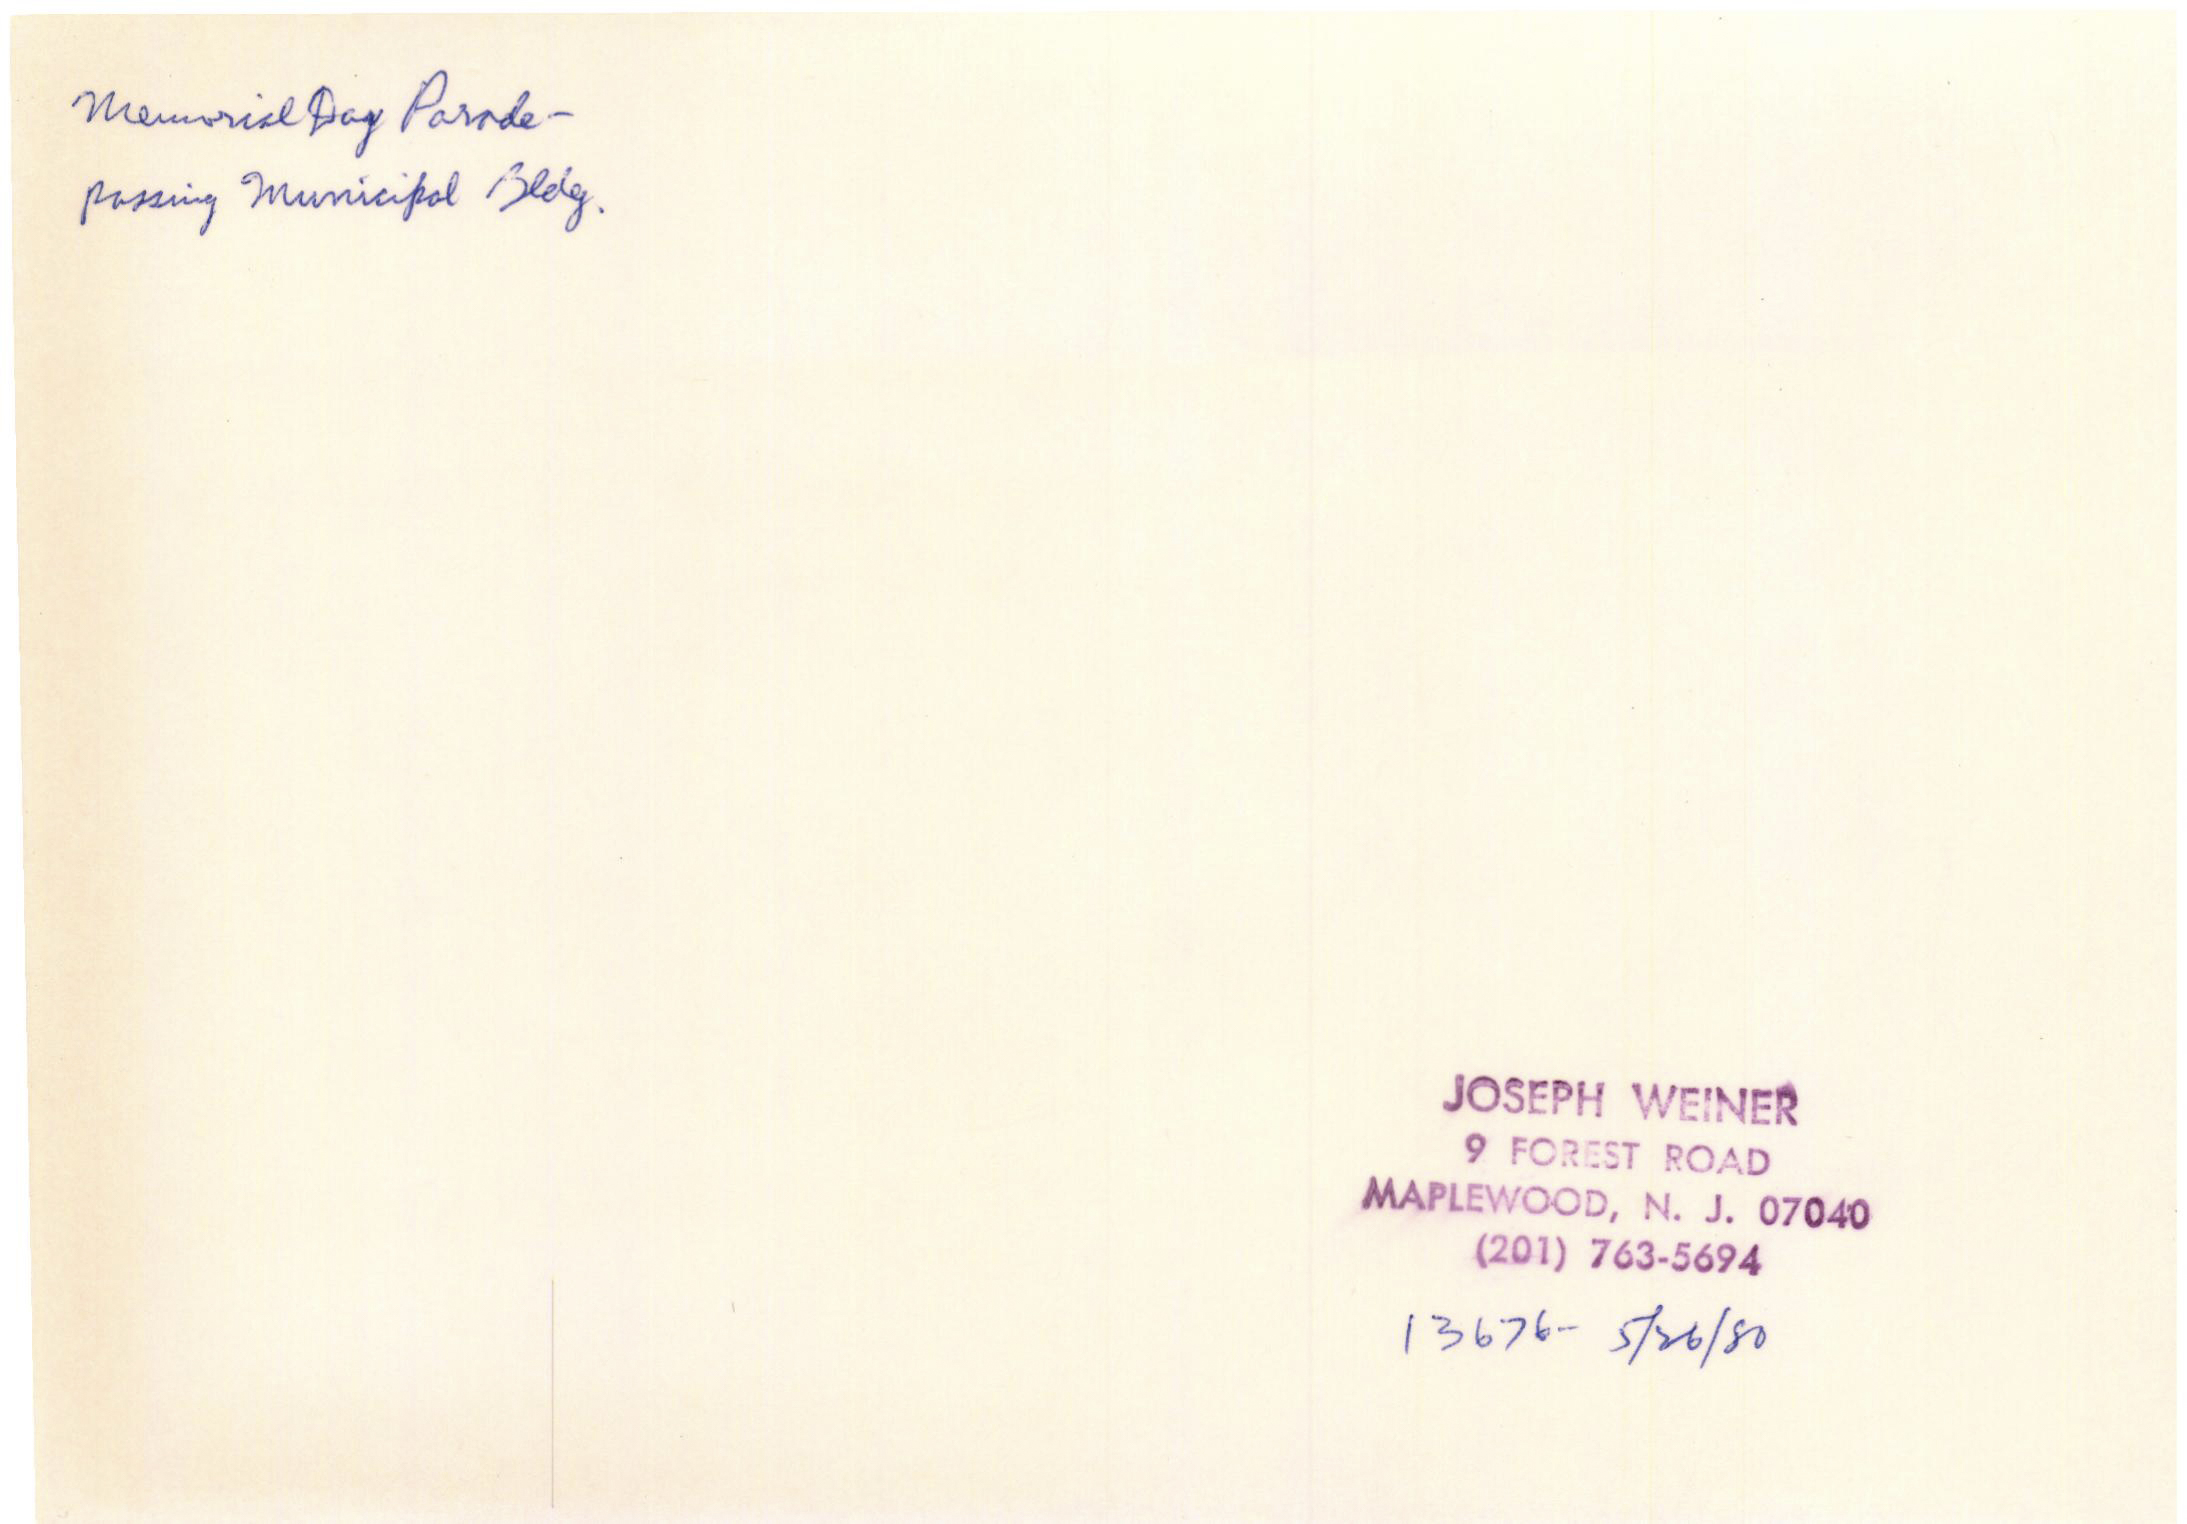 Memorial Day Parade -
passing Municipal Bldg.
JOSEPH WEINER
9 FOREST ROAD
MAPLEWOOD, N. J. 07040
(201) 763-5694
13676- 5/26/80